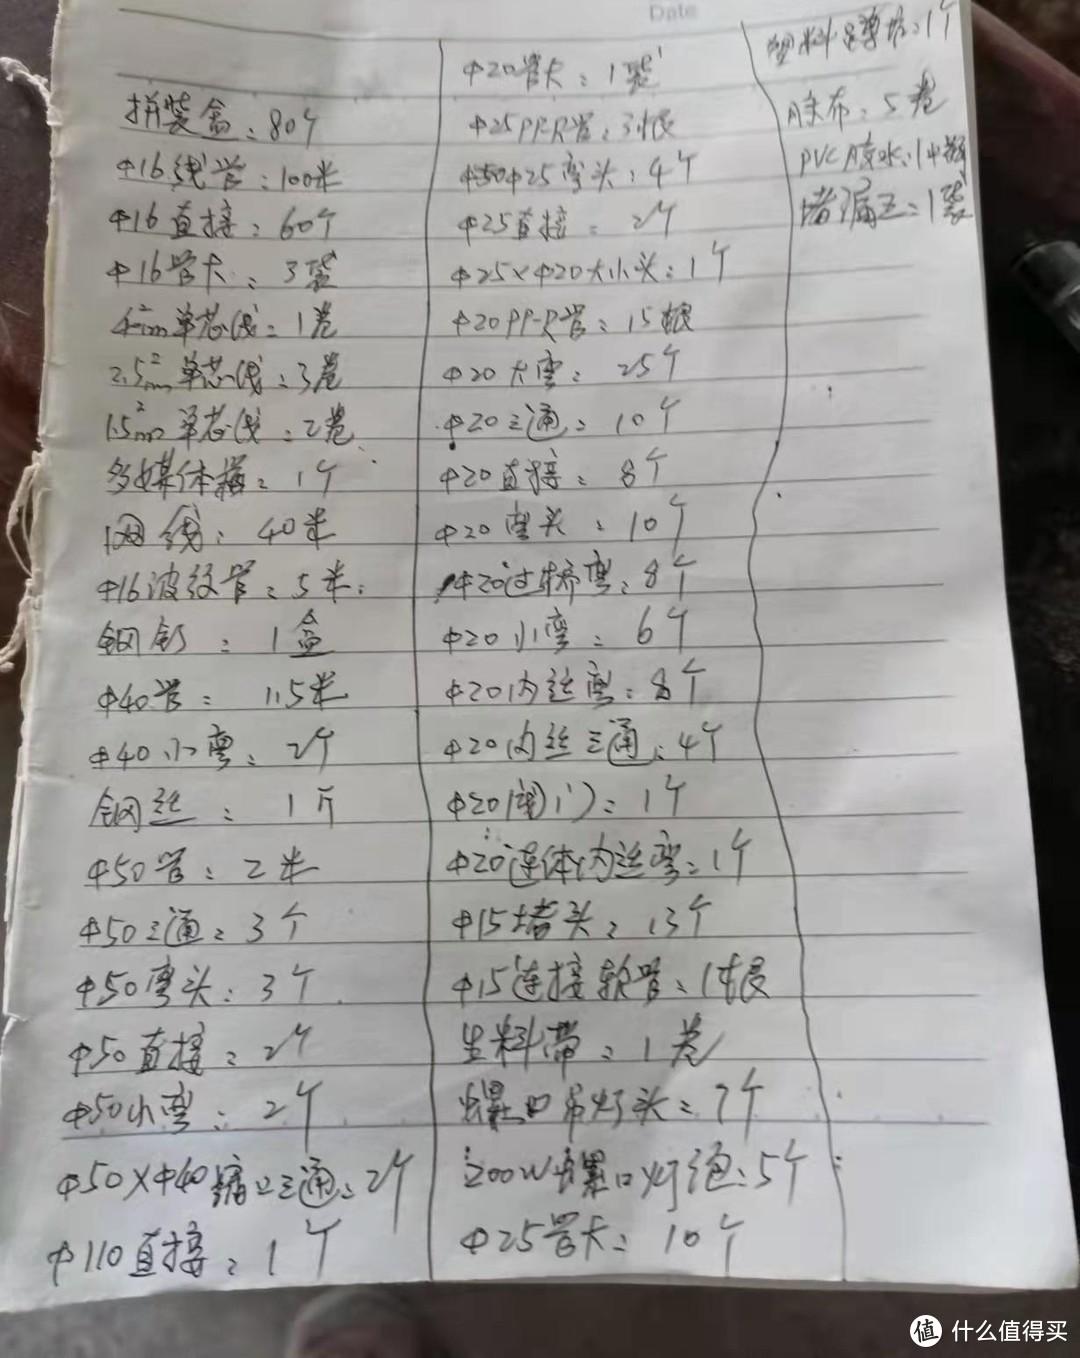 Date
拼装盒：80个
Φ16线管：100米
Φ16直接：60个
Φ16管卡：3袋
4mm²单芯线：1卷
2.5mm²单芯线：3卷
1.5mm²单芯线：2卷
多媒体箱：1个
网线：40米
Φ16波纹管：5米
钢钉：1盒
Φ40管：1.5米
Φ40小弯：2个
钢丝：1斤
Φ50管：2米
Φ50三通：3个
Φ50弯头：3个
Φ50直接：2个
Φ50小弯：2个
Φ50×Φ40缩口三通：2个
Φ110直接：1个
Φ20管卡：1袋
Φ25PP-R管：3根
Φ25弯头：4个
Φ25直接：2个
Φ25×Φ20大小头：1个
Φ20PP-R管：15根
Φ20大弯：25个
Φ20三通：10个
Φ20直接：8个
Φ20弯头：10个
Φ20过桥弯：8个
Φ20小弯：6个
Φ20内丝弯：8个
Φ20内丝三通：4个
Φ20阀门：1个
Φ20连体内丝弯：1个
Φ15堵头：13个
Φ15连接软管：1根
生料带：1卷
螺口吊灯头：7个
200W螺口灯泡：5个
Φ25管卡：10个
塑料：1个
胶布：5卷
PVC胶水：1中瓶
堵漏王：1袋
值 什么值得买